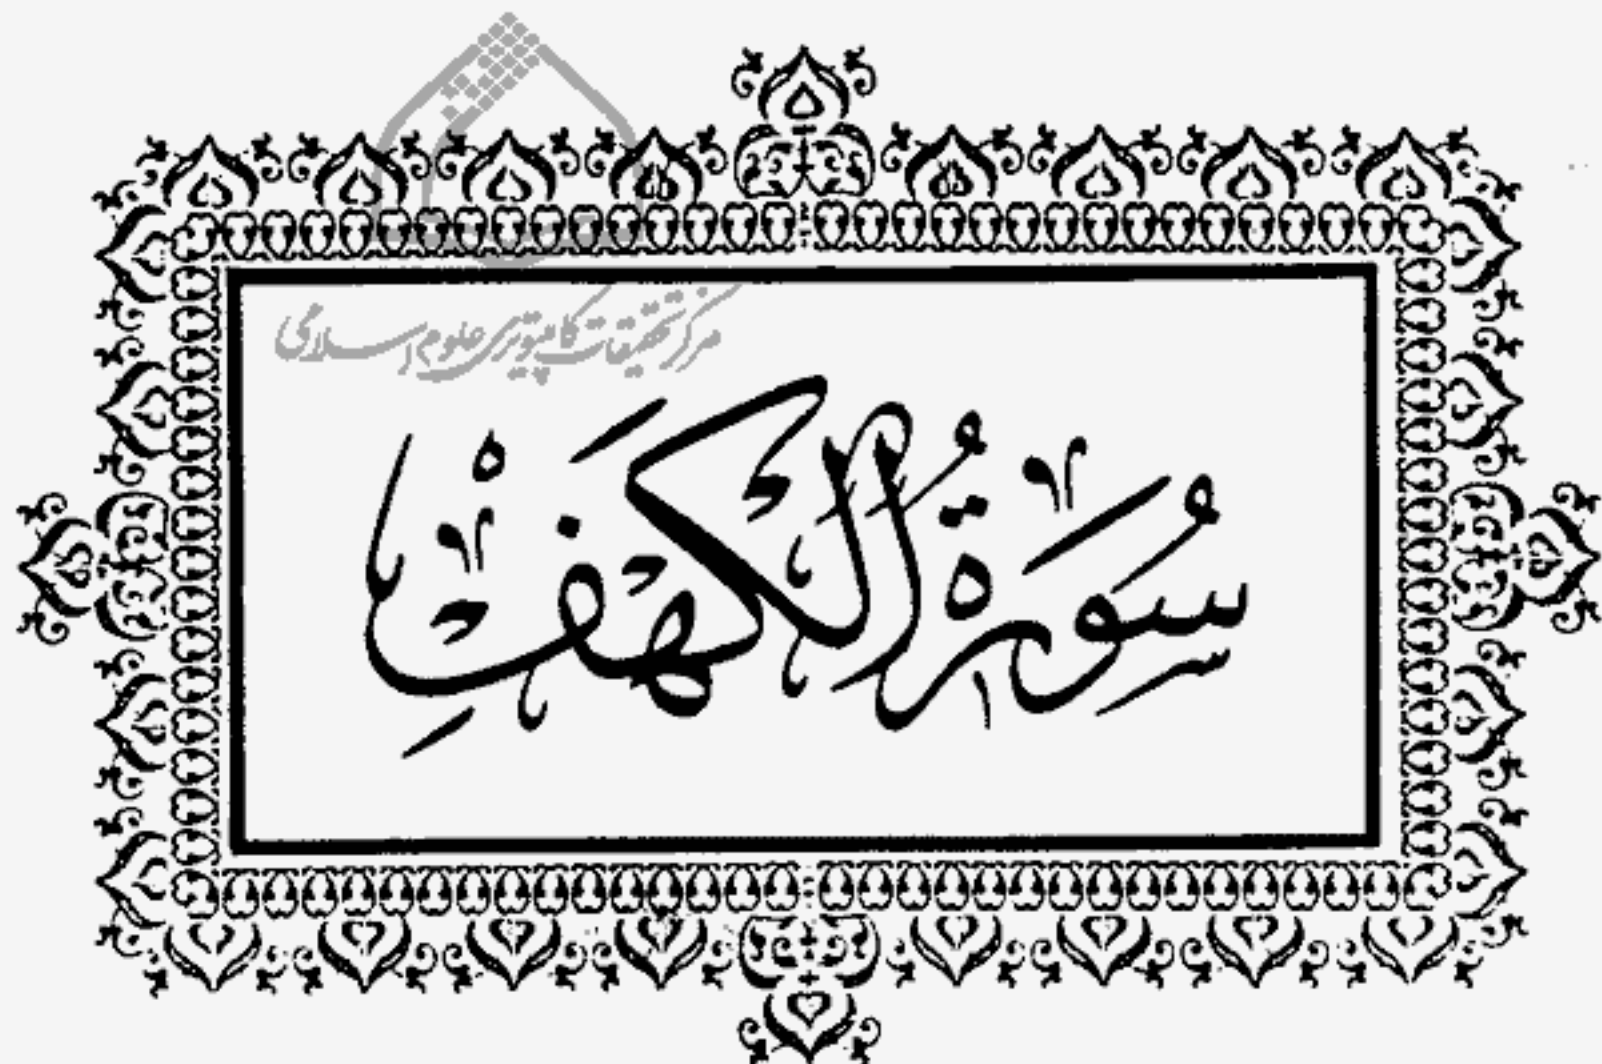 مرکز تحقیقات کامپیوتری علوم اسلامی
سُورَةُ الْكَهَفِ